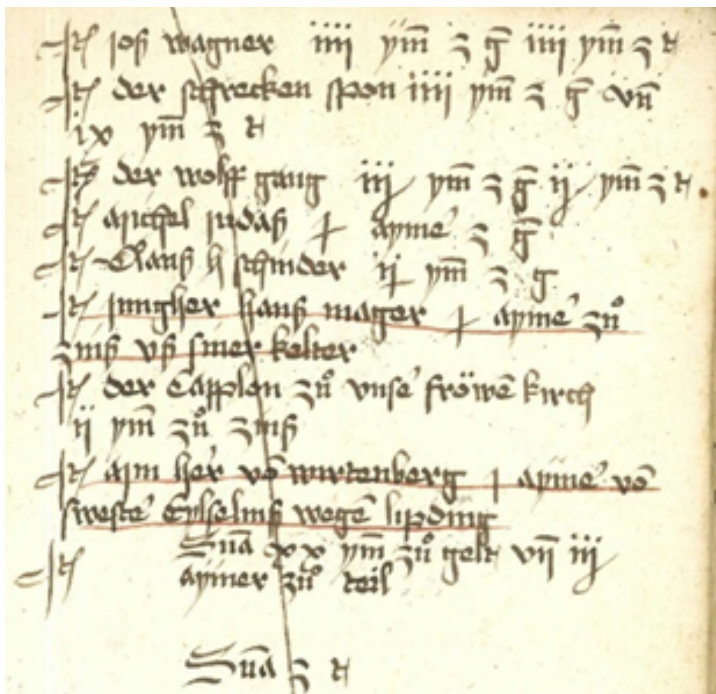 It jos wagner iiii ym̄ z ḡ iiii ym̄ z t
It der schrecken spon iiii ym̄ z ḡ vn̄
ix ym̄ z t
It der wolff gang iij ym̄ z ḡ ij ym̄ z t
It michel judas j aymē z ḡ
It Clauß h schinder ij ym̄ z g
It jungher hanß mager j aymē zů
zinß vß siner kelter
It der Capplon zů vnsē fröwē kirch
ij ym̄ zů zinß
It min her vō wirtenberg j aymē vō
swestē wegē lipding
Sūa xx ym̄ zů gelt vn̄ iij
aymer zů teil
Sūa z t